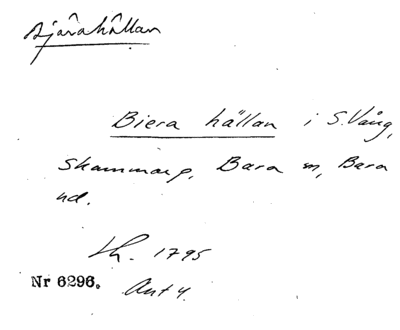 Bjärahällan
Biera hällan i S. Vång,
Skammarp, Bara sn, Bara
hd.
Lh. 1795
Nr 6296. Akt 4.